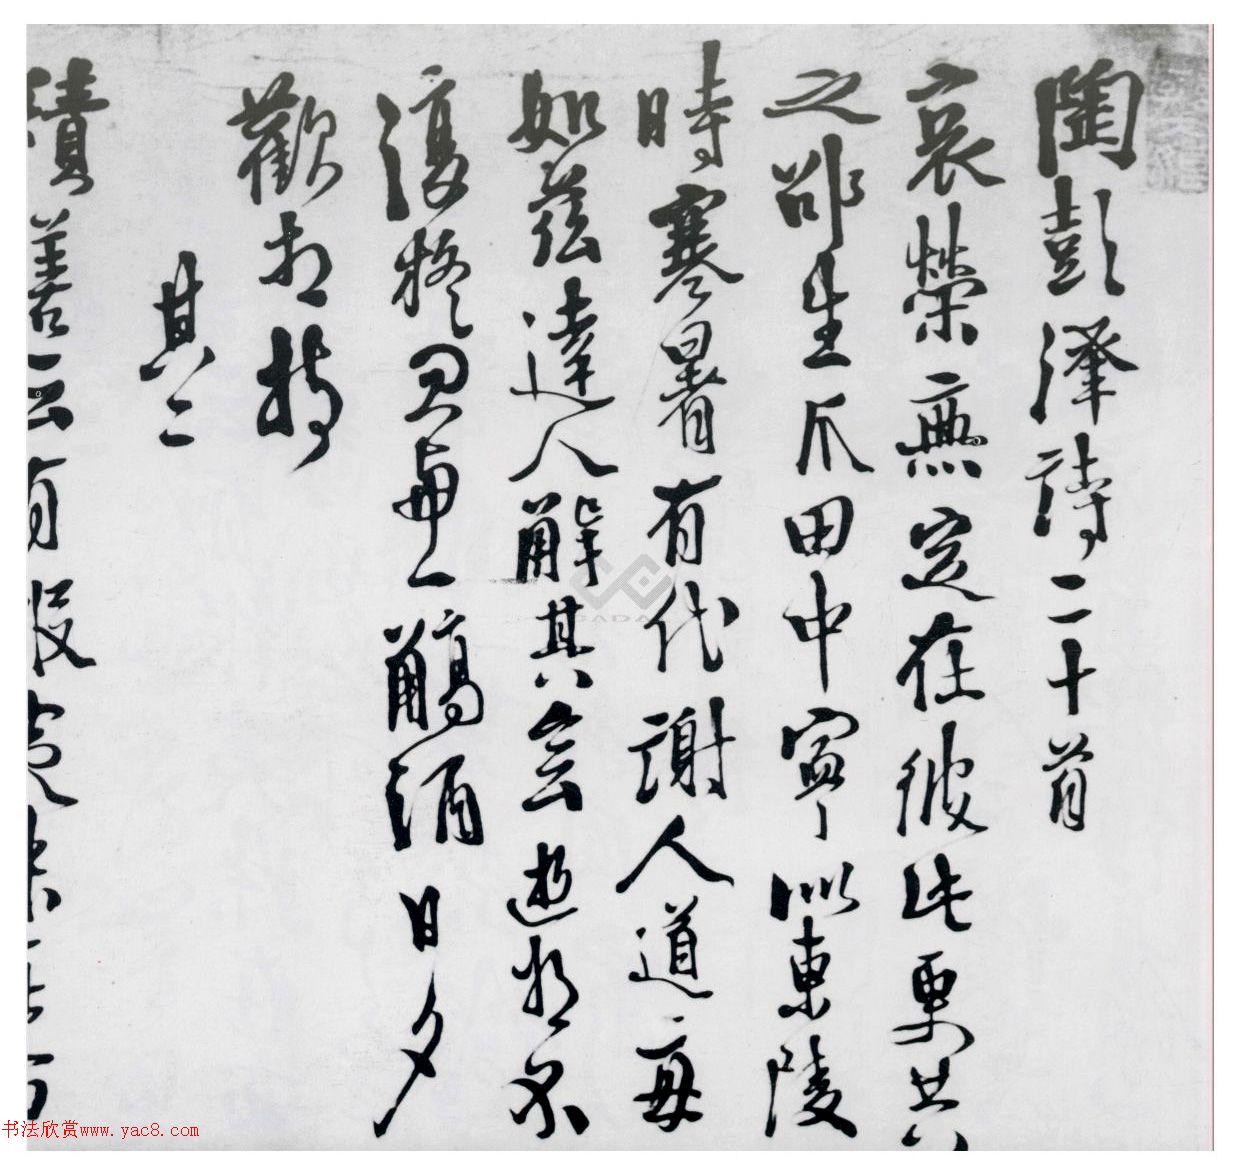 陶彭澤詩二十首
衰榮無定在彼此更共
之邵生瓜田中寧似東陵
時寒暑有代謝人道每
如茲達人解其会逝将不
復疑忽與一觴酒日夕
歡相持
其二
積善云有报夷叔在西
书法欣赏www.yac8.com